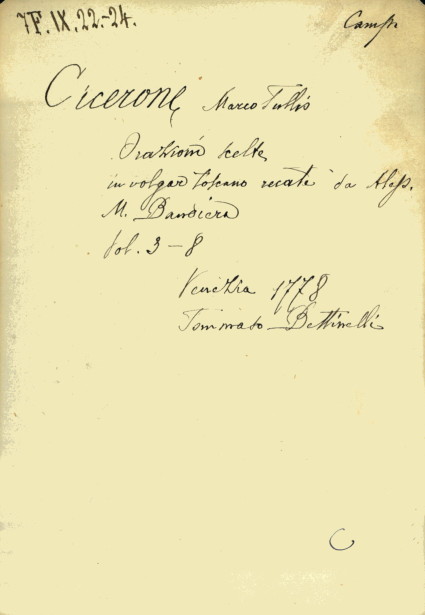 7F.IX.22.-24.
Camp.
Cicerone, Marco Tullio
Orazioni scelte
in volgar toscano recate da Aless.
M. Bandiera
Vol. 3-8
Venezia 1778
Tommaso Bettinelli
C